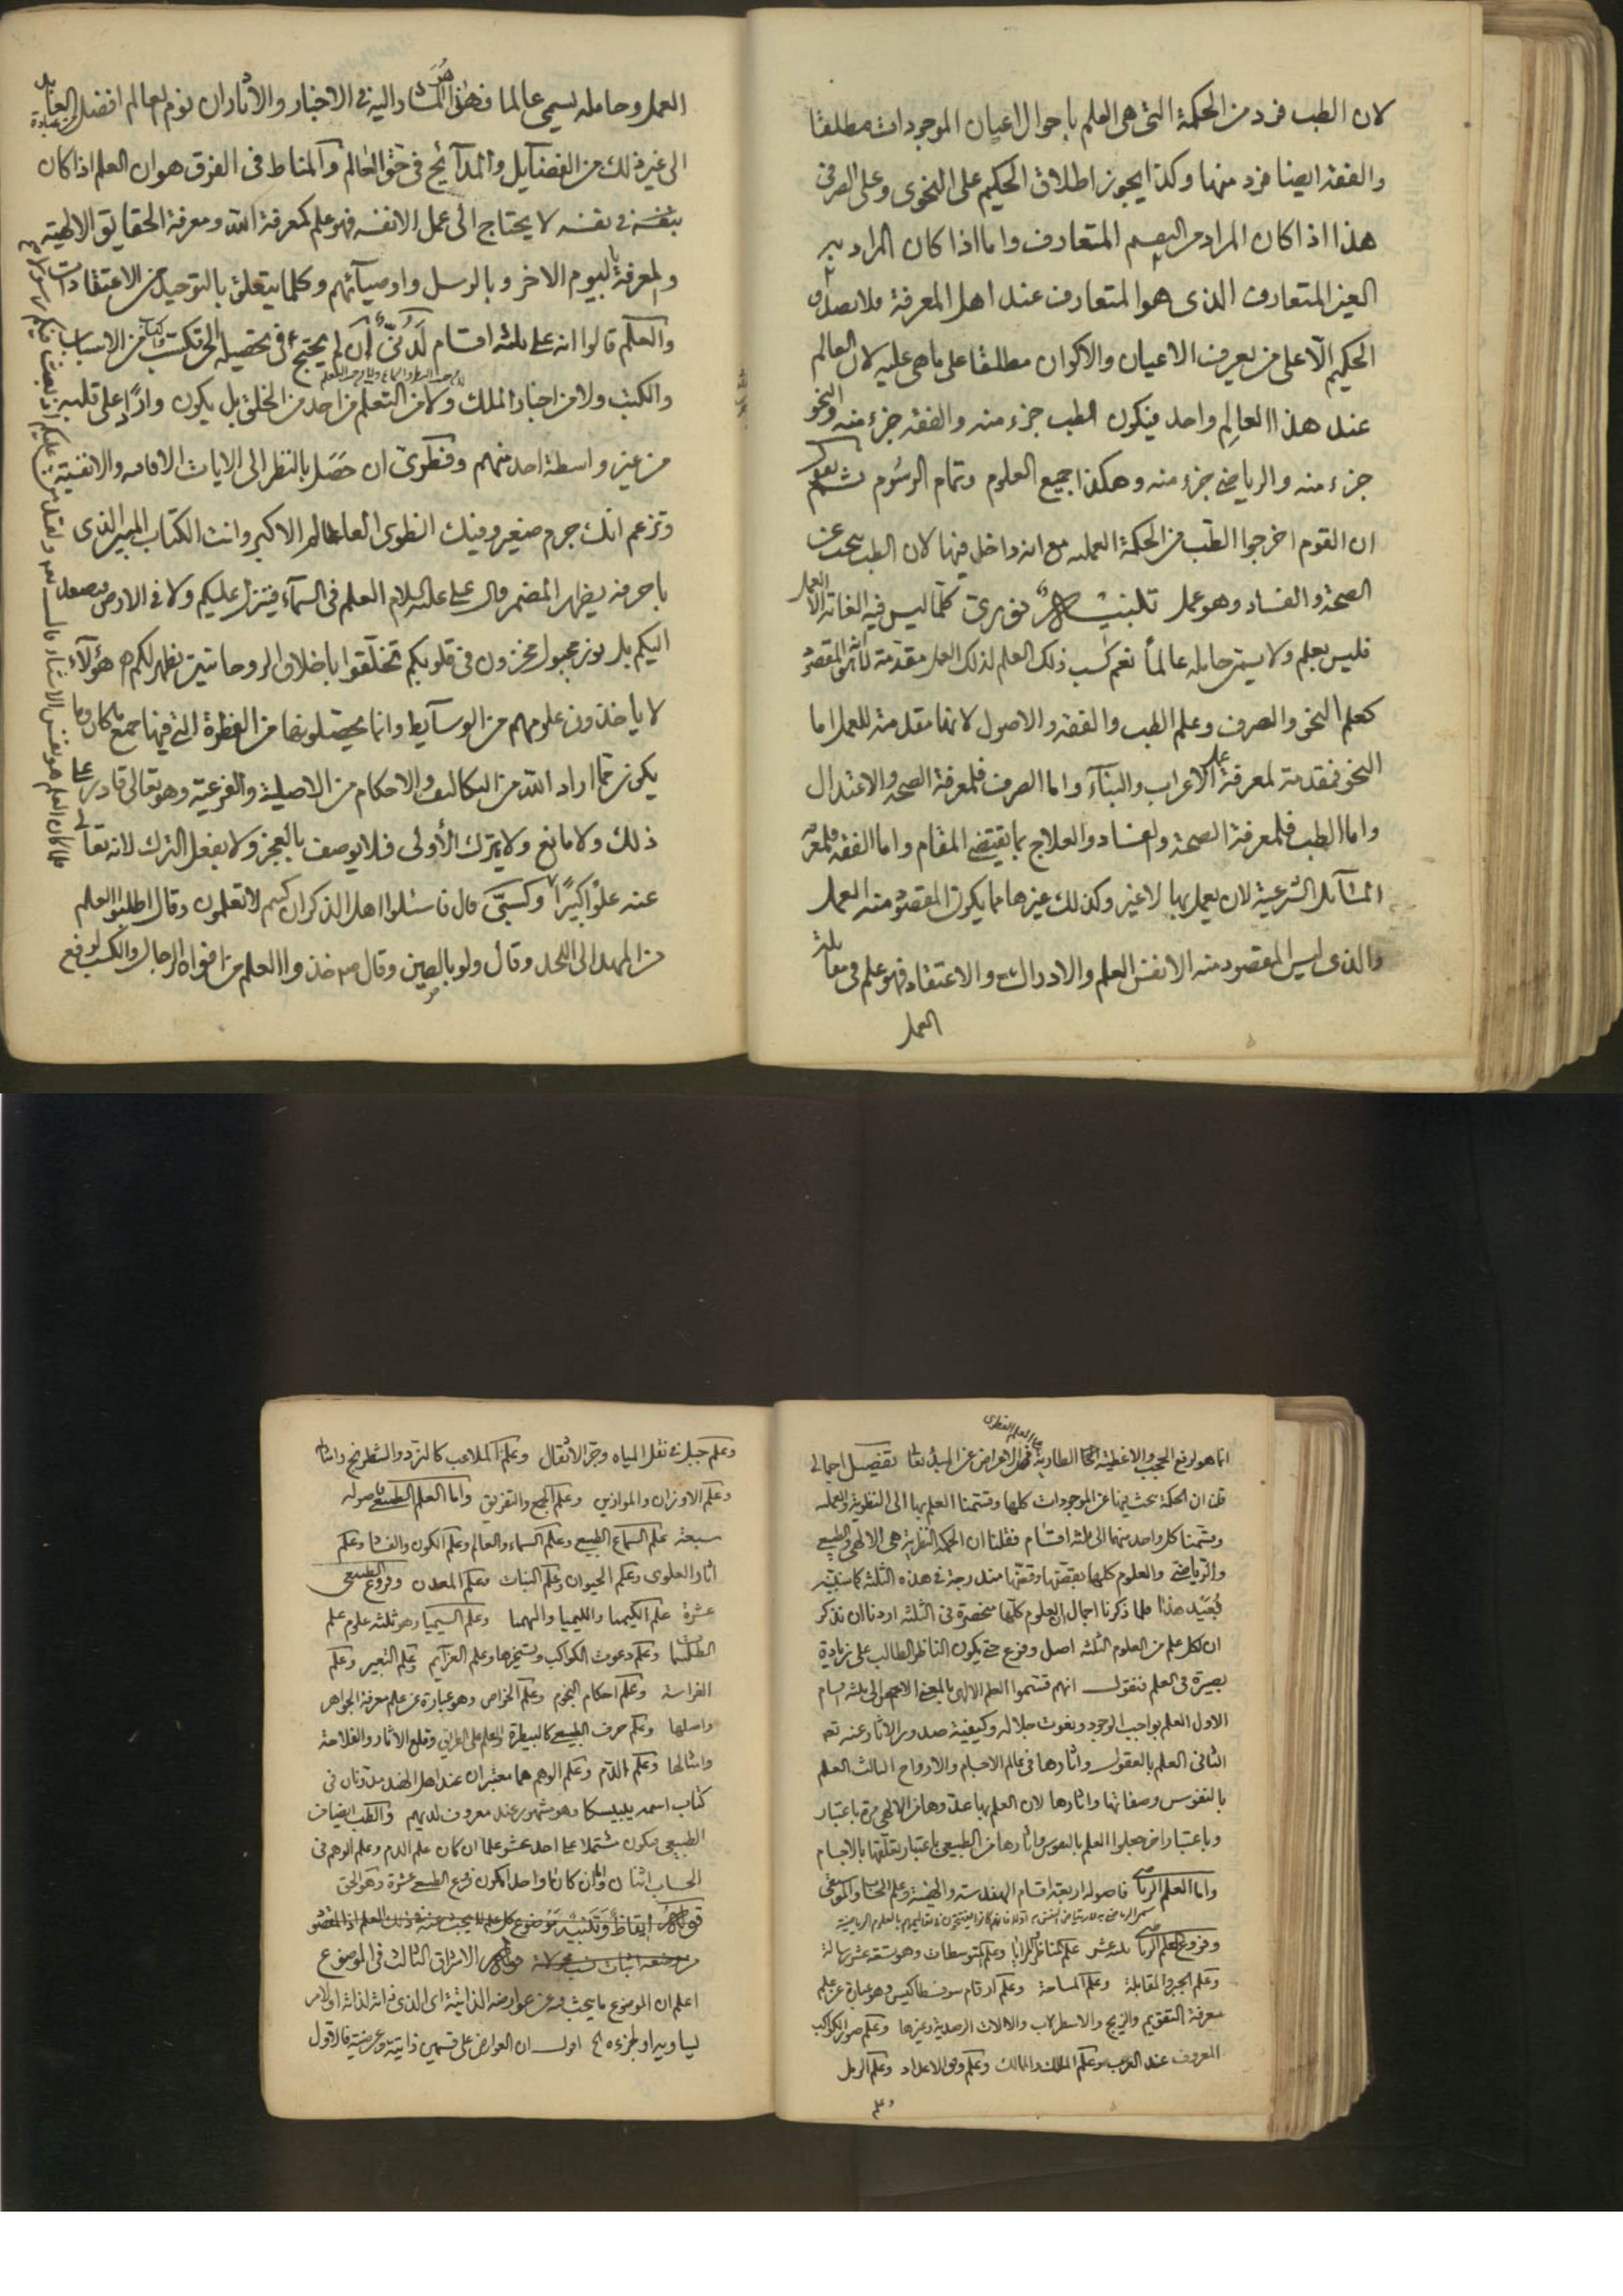 لان الطب فرد من الحكمة التى هى العلم باحوال اعيان الموجودات مطلقا
والفقه ايضا فرد منها وكذا يجوز اطلاق الحكيم على النحوى وعلى الصرفى
هذا اذا كان المراد من المتعارف واما اذا كان المراد به
الغير المتعارف الذى هو المتعارف عند اهل المعرفة فلا يصدق
الحكيم الّا على من يعرف الاعيان والاكوان مطلقا على ما هى عليه لان العالم
عند هذا العالم واحد فيكون الطب جزء منه والفقه جزء منه والنحو
جزء منه والرياضى جزء منه وهكذا جميع العلوم وتمام الرسوم
ان القوم اخرجوا الطب من الحكمة العمليه مع انه داخل فيها لان الطب يبحث عن
الصحة والفساد وهو عمل نورىّ كلما ليس فيه الغاية الا العمل
فليس بعلم ولا يسمّى حامله عالماً نعم كسب ذلك العلم لذلك العمل مقدمة
كعلم النحو والصرف وعلم الطب والفقه والاصول لانها مقدمة للعمل اما
النحو فمقدمة لمعرفة الاعراب والبناء واما الصرف فلمعرفة الصحة والاعتدال
واما الطب فلمعرفة الصحة والفساد والعلاج بما يقتضى المقام واما الفقه فلمعرفة
المسائل الشرعية لان يعمل بها لا غير وكذلك غيرها مما يكون المقصود منه العمل
والذى ليس المقصود منه الا نفس العلم والادراك والاعتقاد فهو علم فى مقابلة
العمل
العمل وحامله يسمى عالما فهذا هو المشار اليه فى الاخبار والآثار ان نوم العالم افضل من عبادة العابد
الى غير ذلك من الفضايل والمدايح فى حق العالم والمناط فى الفرق هو ان العلم اذا كان
بنفسه فى نفسه لا يحتاج الى عمل الا نفسه فهو علم كمعرفة الله ومعرفة الحقايق الالهية
والمعرفة باليوم الاخر وبالرسل واوصيائهم وكلما يتعلق بالتوحيد من الاعتقادات
والعلم قالوا انه على ثلثه اقسام لَدُنّىّ ان لم يحتج فى تحصيله الى من الاسباب
والكتب ولا من اخبار الملك ولا من التعلم من احد من الخلق بل يكون وارداً على قلبه
من غير واسطة احد منهم وفطرىّ ان حصل بالنظر الى الايات الافاقيه والانفسية
وتزعم انك جرم صغير وفيك انطوى العالم الاكبر وانت الكتاب المبين الذى
باحرفه يظهر المضمر وقال على عليه السلام ليس العلم فى السماء فينزل عليكم ولا فى الارض فيصعد
اليكم بل نور مجبول مخزون فى قلوبكم تخلّقوا باخلاق الروحانيين يظهر لكم هؤلاء
لا ياخذون علومهم من الوسايط وانما يحصلونها من الفطرة التى فيها جميع ما كان وما
يكون مما اراد الله من التكاليف والاحكام من الاصلية والفرعية وهو تعالى قادر على
ذلك ولا مانع ولا يترك الأولى فلا يوصف بالعجز ولا بفعل الترك لانه تعالى
عنه علوّا كبيرًا وكسبىّ قال فاسئلوا اهل الذكر ان كنتم لا تعلمون وقال اطلبوا العلم
من المهد الى اللحد وقال ولو بالصين وقال خذوا العلم من افواه الرجال والكسب لرفع
انما هو لرفع الحجب والاغطية الطارية
قلنا ان الحكمة يبحث فيها عن الموجودات كلها وقسّمنا العلم بها الى النظرية والعمليه
وقسّمنا كل واحد منهما الى ثلثه اقسام فقلنا ان الحكمة النظرية هى الالهى والطبيعى
والرياضى والعلوم كلها مندرجة فى هذه الثلثة
بُعَيد هذا فلما ذكرنا اجمال العلوم كلها منحصرة فى الثلثه اردنا ان نذكر
ان لكل علم من العلوم الثلثه اصل وفروع حتى يكون الناظر الطالب على زيادة
بصيرة فى العلم فنقول انهم قسّموا العلم الالهى بالمعنى الى ثلثه اقسام
الاول العلم بواجب الوجود ونعوت جلاله وكيفية صدور الاثار عنه تعه
الثانى العلم بالعقول واثارها فى عالم الاجسام والارواح الثالث العلم
بالنفوس وصفاتها واثارها لان العلم بها عدّوها من الالهى مرة باعتبار
وباعتبار اخر جعلوا العلم بالنفوس واثارها من الطبيعى باعتبار تعلقها بالاجسام
واما العلم الرياضى فاصوله اربعة اقسام الهندسه والهيئة وعلم الحساب والموسيقى
وفروع العلم الرياضى علم المناظر والمرايا وعلم المتوسطات وهو ستة عشر رسالة
وعلم الجبر والمقابلة وعلم المساحة وعلم ارقام وهو عبارة عن علم
معرفة التقويم والزيج والاسطرلاب والالات الرصدية وغيرها وعلم صور الكواكب
المعروف عند العرب وعلم المسالك والممالك وعلم وفق الاعداد وعلم الرمل
وعلم
وعلم حيل فى نقل المياه وجرّ الاثقال وعلم الملاعب كالنرد والشطرنج وامثالها
وعلم الاوزان والموازين وعلم الجمع والتفريق واما العلم الطبيعى فاصوله
سبعة علم السماع الطبيعى وعلم السماء والعالم وعلم الكون والفساد وعلم
اثار العلوى وعلم الحيوان وعلم النبات وعلم المعدن وفروع الطبيعى
عشرة علم الكيميا والليميا والهيميا وعلم السيميا وهو ثلثه علوم علم
الطلسمات وعلم دعوت الكواكب وتسخيرها وعلم العزايم وعلم التعبير وعلم
الفراسة وعلم احكام النجوم وعلم الخواص وهو عبارة عن علم معرفة الجواهر
واصلها وعلم حرف الطبيعى كالبيطرة وقلع الاثار والفلاحة
وامثالها وعلم الدّم وعلم الوهم هما معتبران عند اهل الهند مدونان فى
كتاب اسمه وهو مشهور عند معروف لديهم والطب ايضا من
الطبيعى فيكون مشتملا على احد عشر علما ان كان علم الدم وعلم الوهم فى
الحساب اثنان وان كانا واحدا يكون فروع الطبيعى عشرة وهو الحق
الاشراق الثالث فى الموضوع
اعلم ان الموضوع ما يبحث فيه عن عوارضه الذاتية اى الذى لذاته او لامر
يساويه او لجزءه الخ اقول ان العوارض على قسمين ذاتية وعرضية فالاول